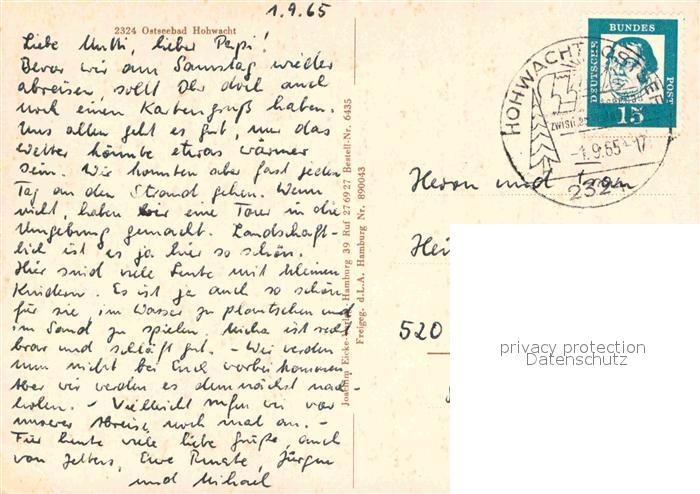 1.9.65
2324 Ostseebad Hohwacht
Liebe Mutti, lieber Papi!
Bevor wir am Samstag wieder
abreisen, sollt Ihr doch auch
noch einen Kartengruß haben.
Uns allen geht es gut, nur das
Wetter könnte etwas wärmer
sein. Wir konnten aber fast jeden
Tag an den Strand gehen. Wenn
nicht, haben wir eine Tour in die
Umgebung gemacht. Landschaft-
lich ist es ja hier so schön.
Hier sind viele Leute mit kleinen
Kindern. Es ist ja auch so schön
für sie, im Wasser zu plantschen und
im Sand zu spielen. Micha ist sehr
brav und schläft gut. - Wir werden
nun nicht bei Euch vorbeikommen
Aber wir werden es demnächst nach-
holen. - Vielleicht rufen wir vor
unserer Abreise noch mal an. -
Für heute viele liebe Grüße, auch
von Jettens, Eure Renate, Jürgen
und Michael
Joachim Eicke Hamburg 39 Ruf 27 69 27 Bestell-Nr. 6435
Freigeg. d. L.A. Hamburg Nr. 890043
DEUTSCHE
BUNDES
POST
15
HOHWACHT OSTSEE
-1.9.65-17
232
Herrn und Frau
Hei
520
privacy protection
Datenschutz